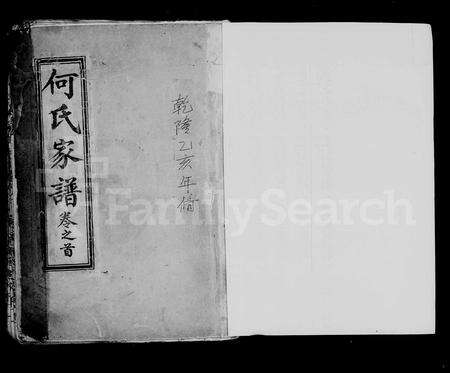 何氏家譜 卷之首
乾隆乙亥年偹
FamilySearch